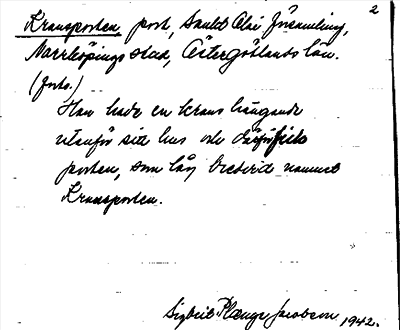 2
Kransporten, port, Sankt Olai församling,
Norrköpings stad, Östergötlands län.
(forts.)
Han hade en krans hängande
utanför sid hus och därför fick
porten, som låg bredvid namnet
Kransporten.
Sigbrit Plænge Jacobson 1942.